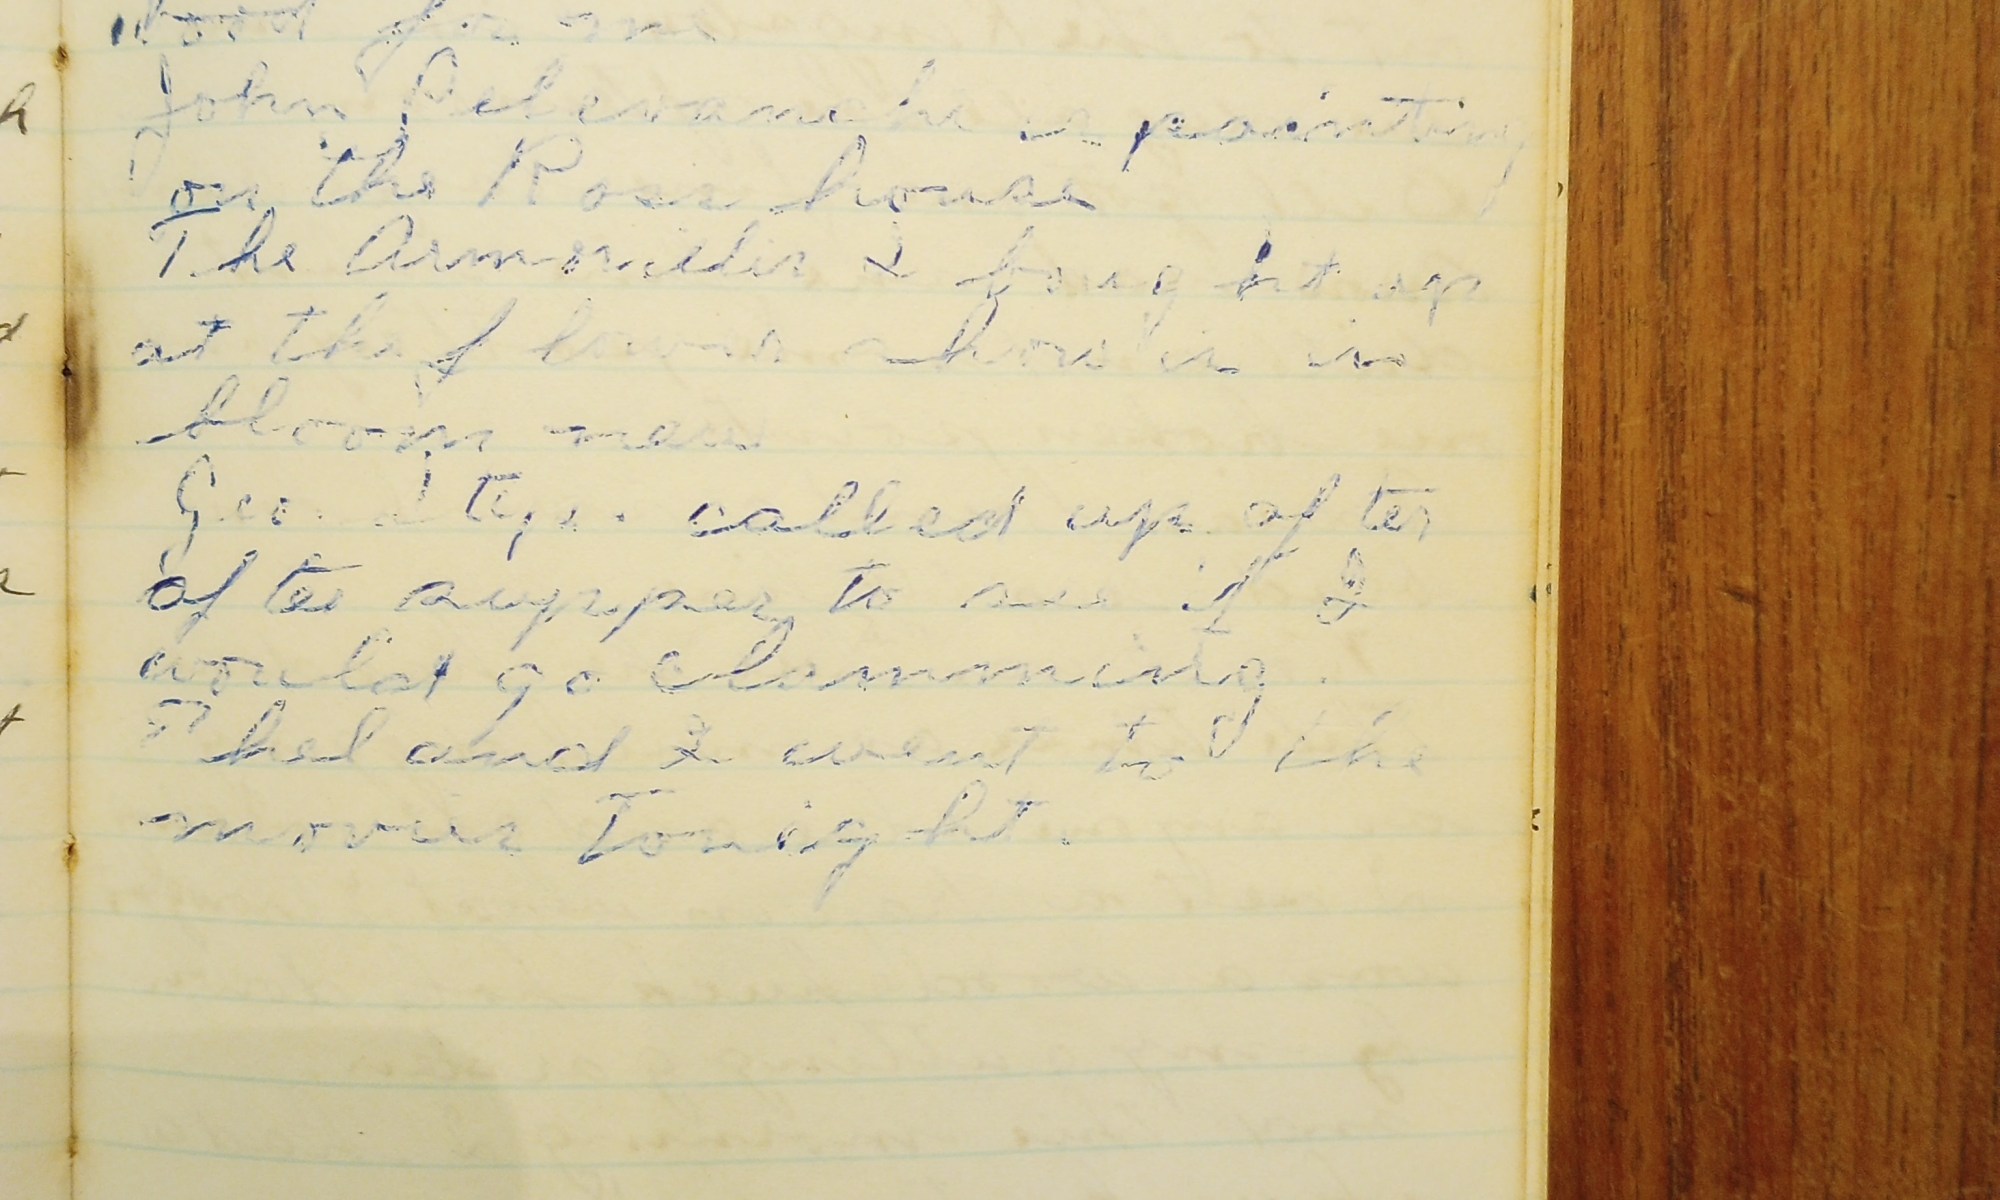 for me
John is painting
on the Ross house
The Armorielis I bought up
at the flower show is in
bloom now
Geo. called up after
after supper to see if I
would go clamming.
Thel and I went to the
movies Tonight.